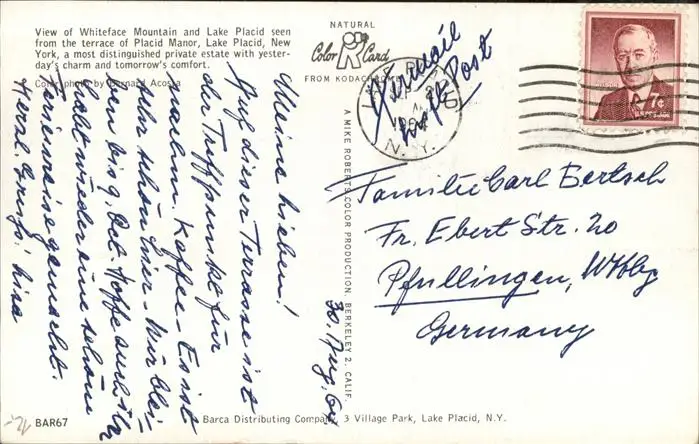 View of Whiteface Mountain and Lake Placid seen
from the terrace of Placid Manor, Lake Placid, New
York, a most distinguished private estate with yester-
day's charm and tomorrow's comfort.
Color photo by Bernard Acosta
NATURAL
Color Card
FROM KODACHROME
LAKE PLACID
N.Y.
7¢
Luftpost
A MIKE ROBERTS COLOR PRODUCTION, BERKELEY 2, CALIF.
30. Aug. 60
Meine Lieben!
Auf dieser Terrasse ist
der Treffpunkt für
nachm. Kaffee - Es ist
sehr schön hier - Wir blei-
ben bis 9. Hoffe auch ihr
habt wieder eine schöne
Ferienreise gemacht.
Herzl. Grüße! Lisa
Familie Carl Bertsch
Fr. Ebert Str. 20
Pfullingen, Wttbg
Germany
BAR67
Barca Distributing Company, 3 Village Park, Lake Placid, N.Y.